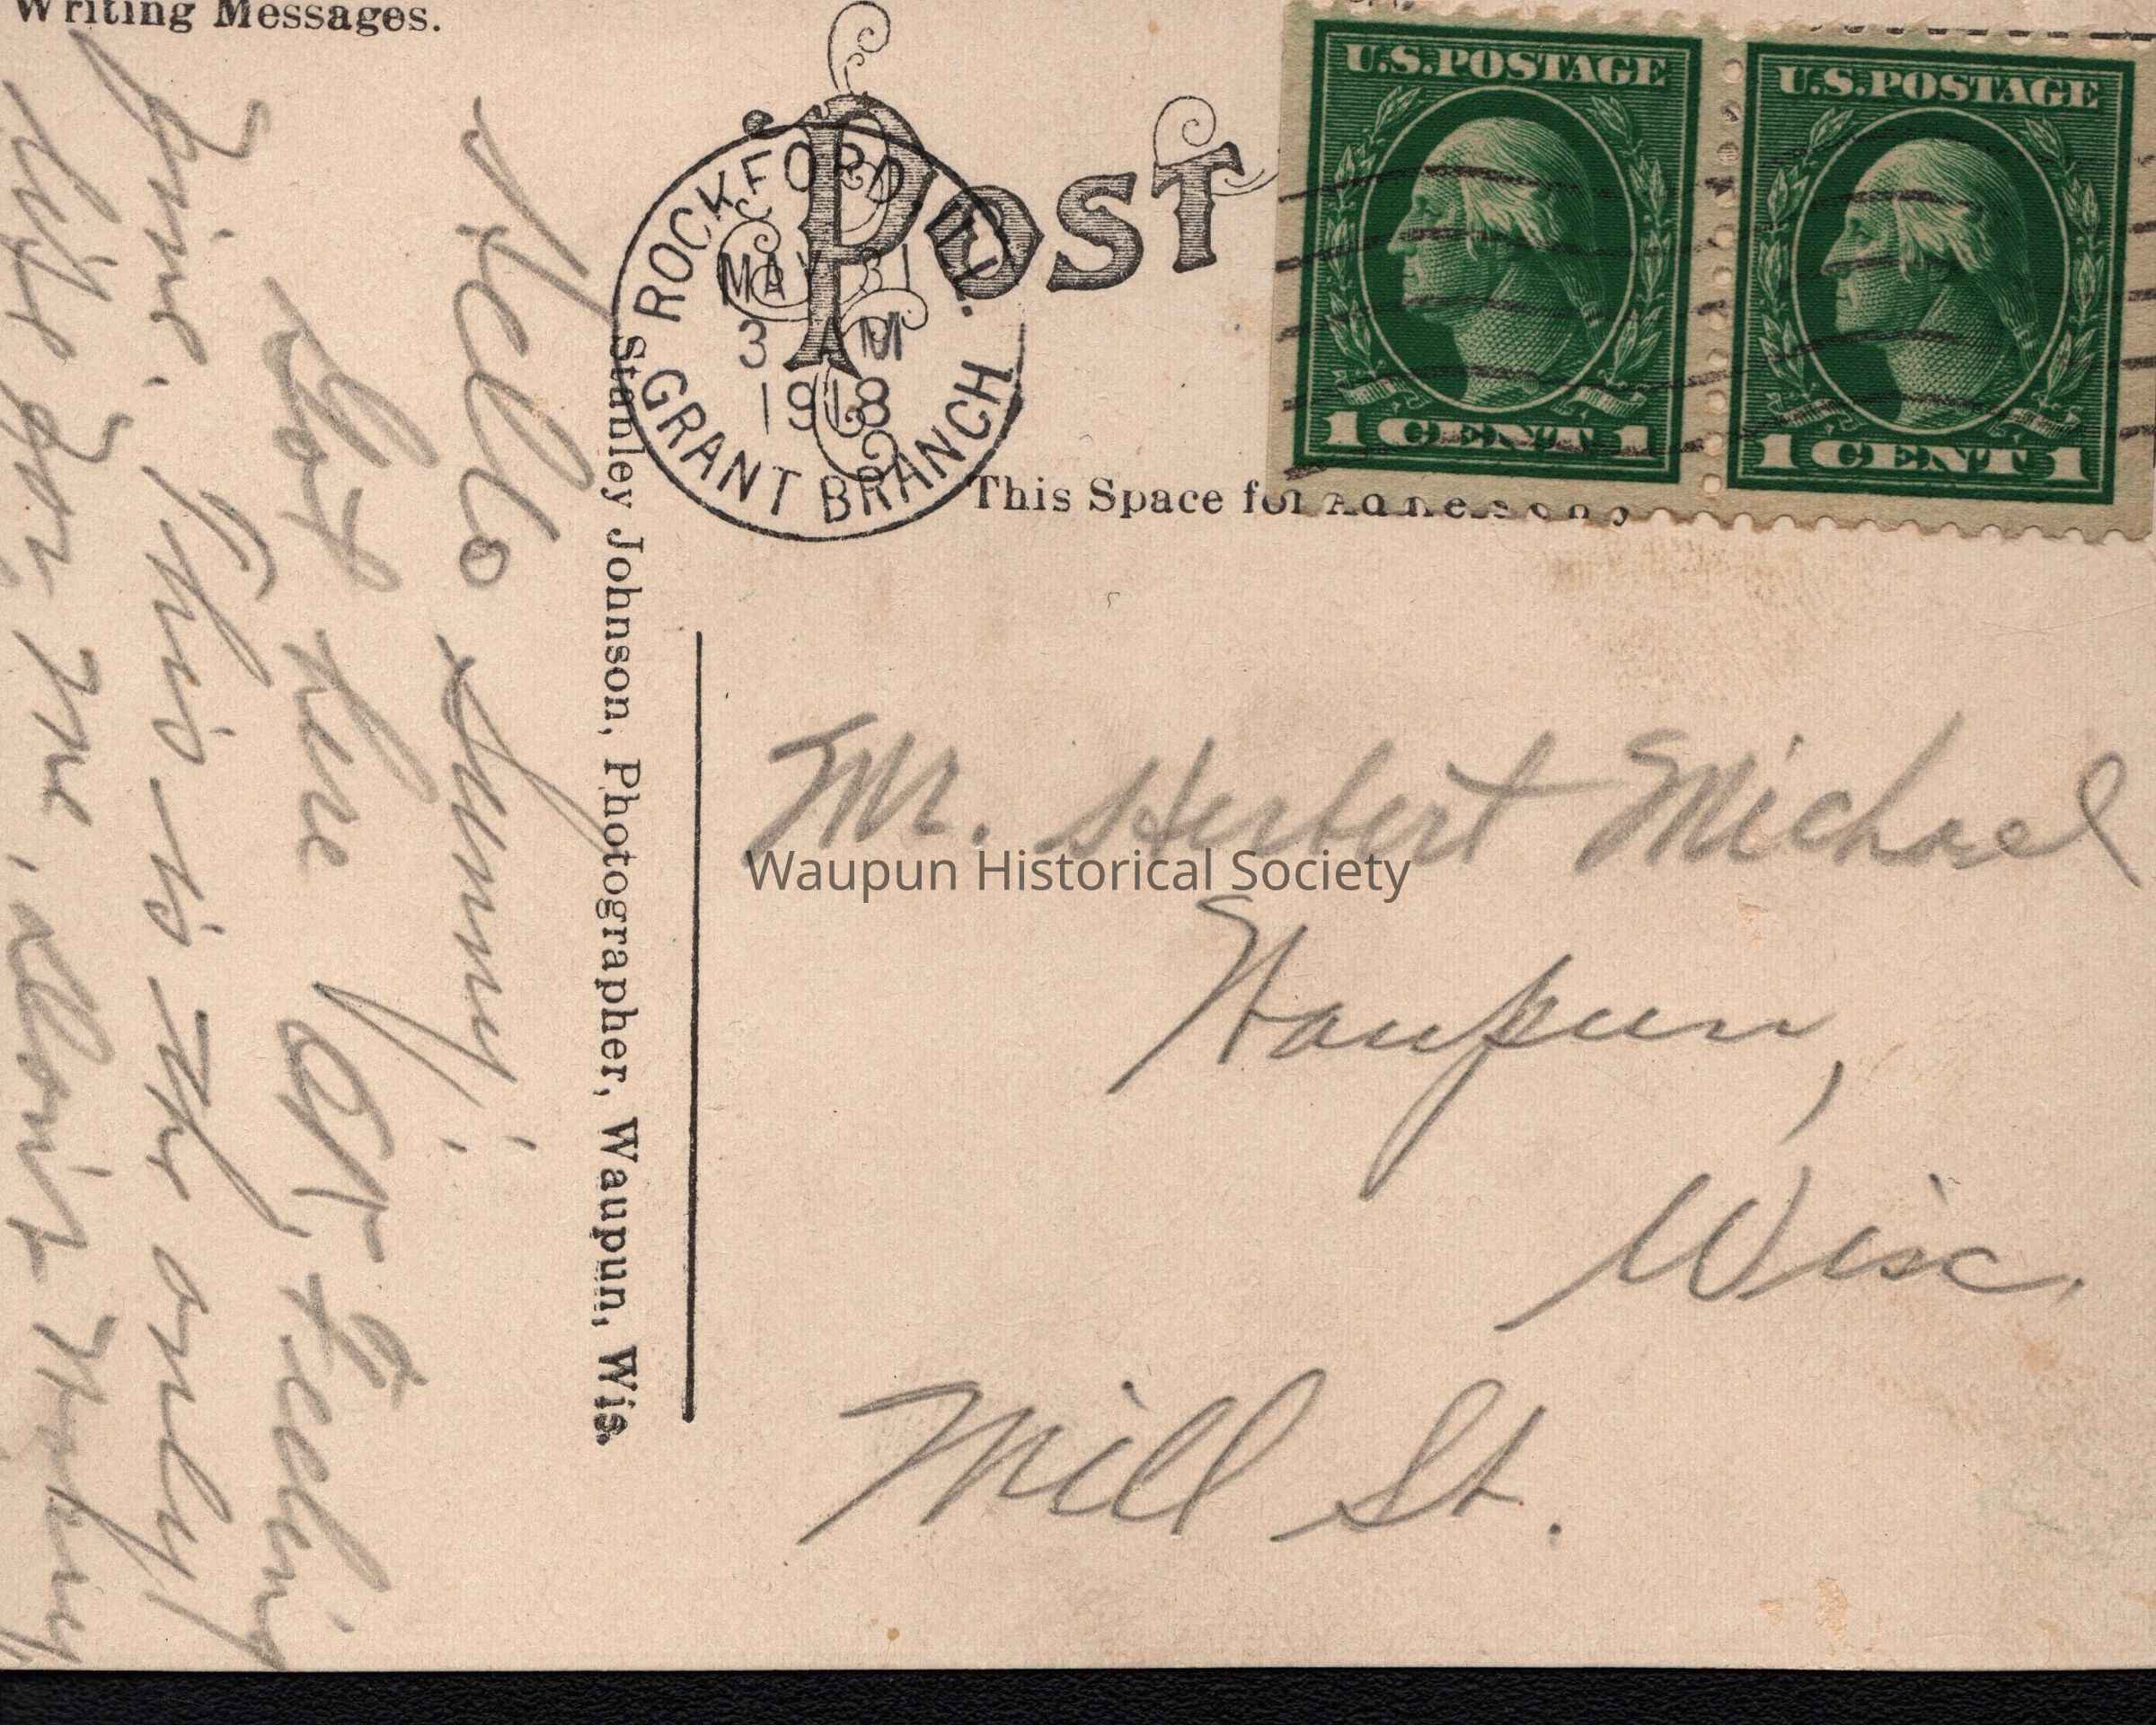 Writing Messages.
Hello Sunny:
Got here OK, feeling
fine. This is the only
life for me, don't worry
Stanley Johnson, Photographer, Waupun, Wis.
POST
ROCKFORD, ILL.
MAY 31
3 AM
1918
GRANT BRANCH
U.S. POSTAGE
1 CENT 1
U.S. POSTAGE
1 CENT 1
This Space for
Mr. Herbert Michael
Waupun,
Wisc.
Mill St.
Waupun Historical Society